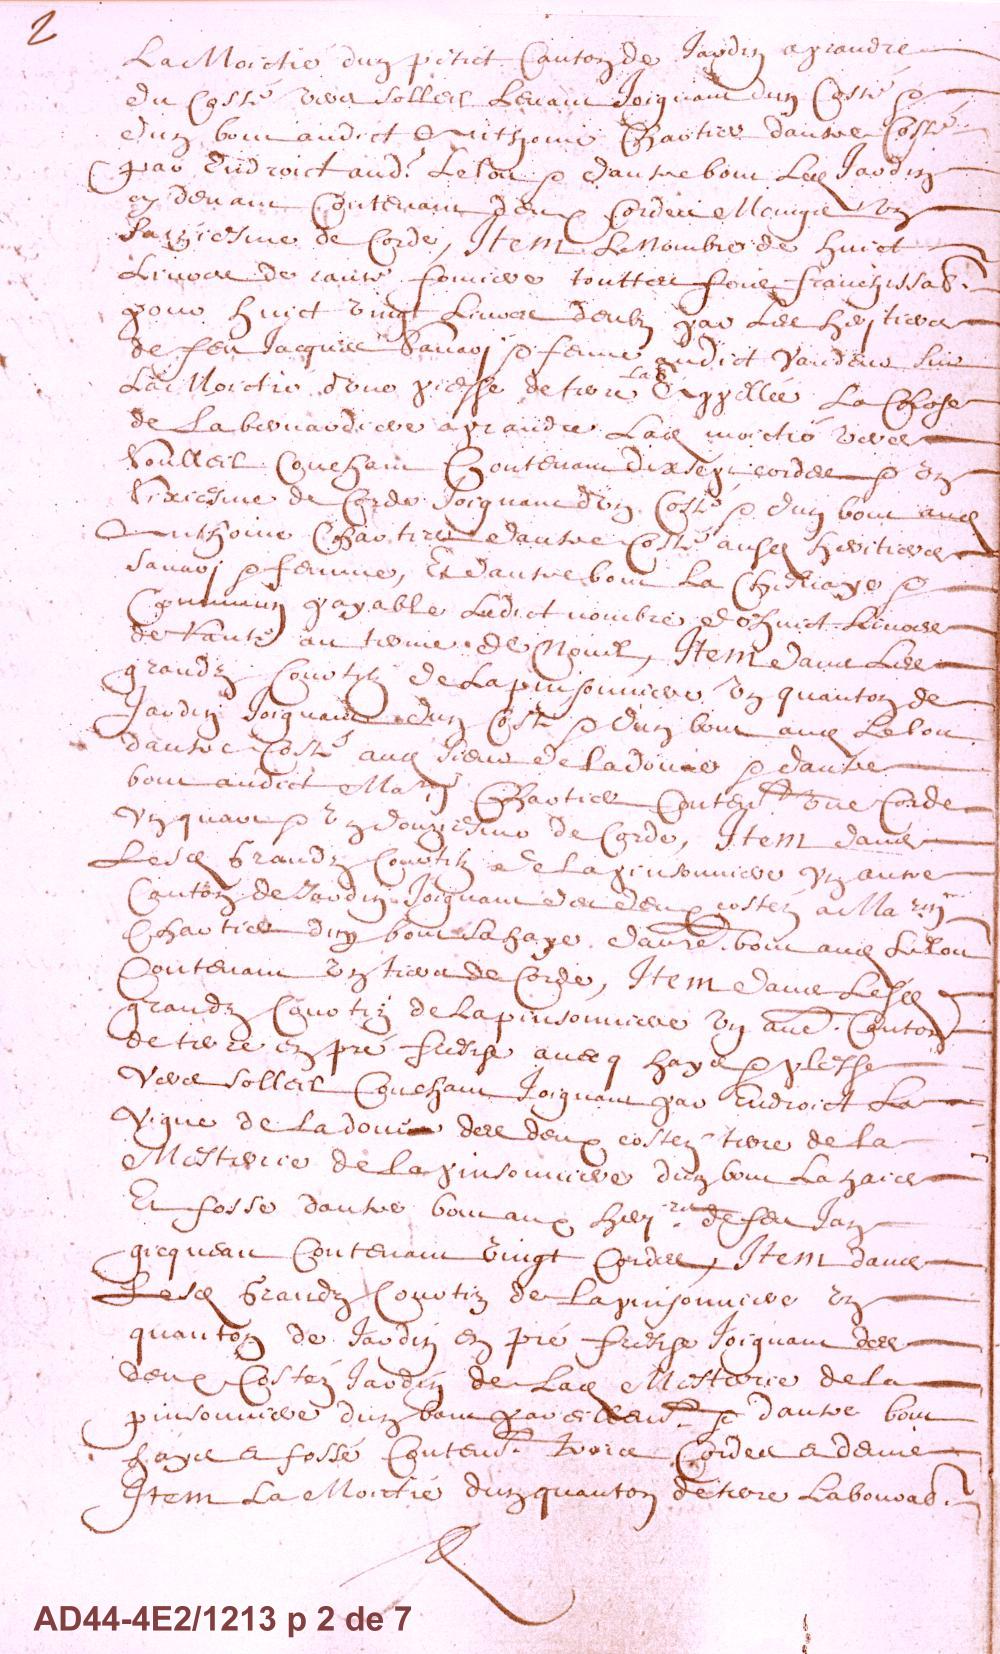 2
La Moictié dun petict Canton de Jardin a prandre
du Costé vers Solleil Levant Joignant dun Costé &
dun bout audict Anthoine Chartier dautre Costé
par Endroict aud. Lelou & dautre bout Led Jardin
Contenant deux Cordes Moings Un
Saiziesme de Corde, Item Le Nombre de huict
Livres de rante fonciere touttes fois franchissab.
pour huict vingt Livres deubz par Les heritiers
de feu Jacques & femme audict vandeur sur
La Moictié dune piesse de terre Lad Appellée La
de La bernardiere a prandre Lad moictié vers
Soulleil Couchant Contenant dix sept cordes & Un
Sixiesme de Corde Joignant dun Costé & dun bout aud
Anthoine Chartier dautre Costé ausd heritiers
& femme, Et dautre bout La &
Commun payable Ledict nombre de huict Livres
de rante au terme de Nouel, Item dans Les
grandz Courtilz de La pinsonniere Un quanton de
Jardin Joignant dun Costé & dun bout aud Lelou
dautre Costé aud sieur de Ladouie & dautre
bout audict Mar Chartier Conten.t Une Corde
Un quart & Un douziesme de Corde, Item dans
Lesd Grandz Courtilz de La pinsonniere Un autre
Canton de Jardin Joignant des deux costez a Ma
Chartier dun bout La haye dautre bout aud Lelou
Contenant Un tiers de Corde, Item dans Lesd
grandz Courtiz de La pinsonniere Un au.e Canton
de terre en pré aud haye & plesse
Vers Solleil Couchant Joignant par Endroict La
Vigne de Ladouie des deux costez terre de la
Mestairie de La pinsonniere dun bout La haie
Et fosse dautre bout aux her de feu Jan
gicqueau Contenant Vingt Cordes, Item dans
Lesd Grandz Courtiz de La pinsonniere Un
quanton de Jardin en pré Joignant des
deux Costez Jardin de Lad Mestairie de La
pinsonniere dun bout & dautre bout
haye & fossé Conten.t Cordes & demie
Item La Moictié dun quanton de terre Labourab.
AD44-4E2/1213 p 2 de 7